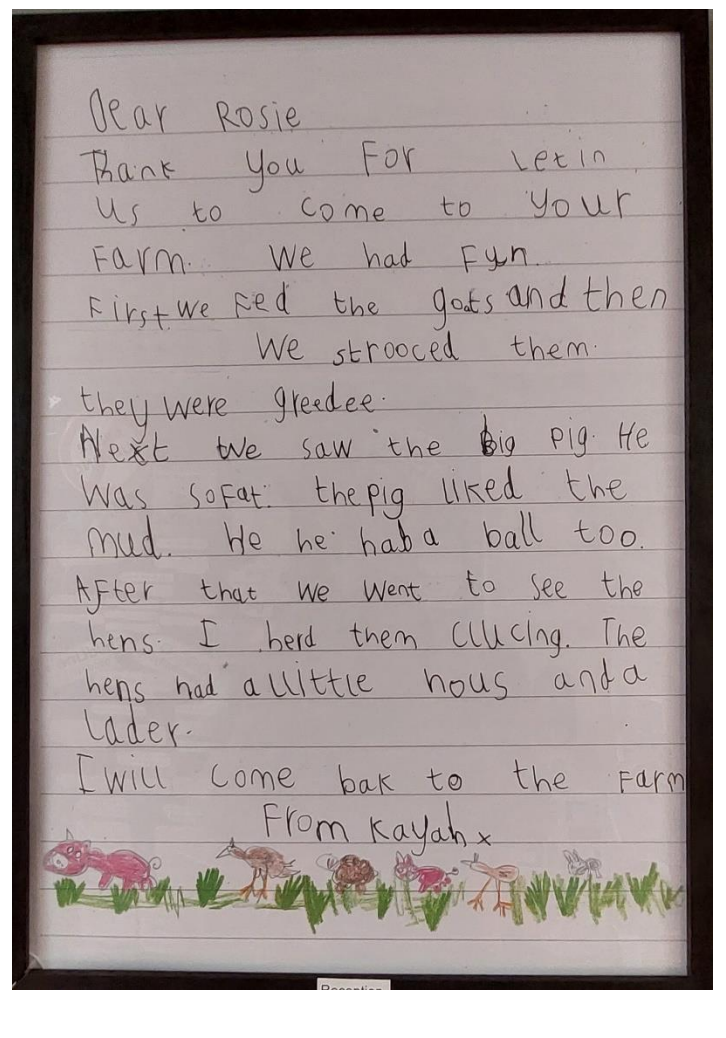 Dear Rosie
Thank you For letin
us to come to your
Farm. We had Fun.
First we Fed the goats and then
We strooced them.
they were greedee.
Next we saw the big pig. He
was sofat. the pig liked the
mud. He he hab a ball too.
AFter that we went to see the
hens. I herd them clucing. The
hens had a littie hous and a
Lader.
I will come bak to the Farm
From Kayah x